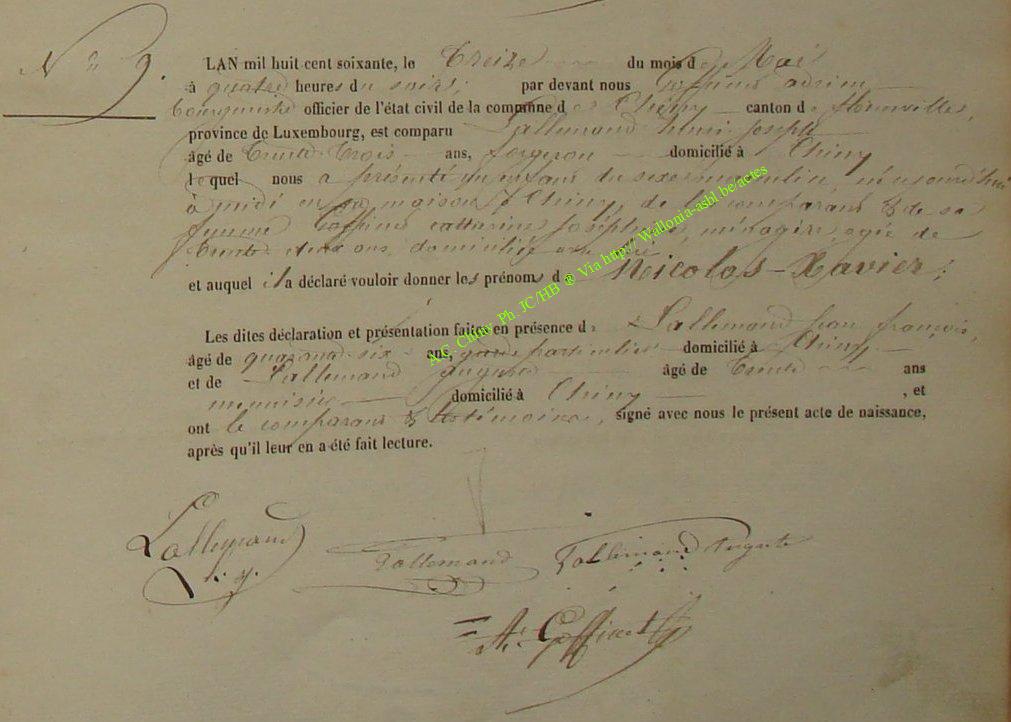 N° 9.
LAN mil huit cent soixante, le Treize du mois de Mai
à quatre heures du soir, par devant nous Goffinet adrien
Bourgmestre officier de l'état civil de la commune de Chiny canton de florenville,
province de Luxembourg, est comparu Lallemand henri Joseph
âgé de Trente-Trois ans, forgeron domicilié à Chiny
lequel nous a présenté un enfant du sexe masculin, né aujourd'hui
à midi en sa maison à Chiny, de le comparant & de sa
femme Goffinet catherine Joséphine, ménagère, agée de
Trente deux ans, domiciliée
et auquel il a déclaré vouloir donner les prénoms de Nicolas-Xavier;
Les dites déclaration et présentation faites en présence de Lallemand Jean françois,
âgé de quarante-six ans, garde particulier domicilié à Chiny
et de Lallemand Auguste âgé de Trente ans
menuisier domicilié à Chiny, et
ont le comparant & les témoins, signé avec nous le présent acte de naissance,
après qu'il leur en a été fait lecture.
Lallemand
h. j.
Lallemand Lallemand Auguste
A. Goffinet
A.S. Chiny Ph. JC/HB ® Via http:// Wallonia-asbl be/actes